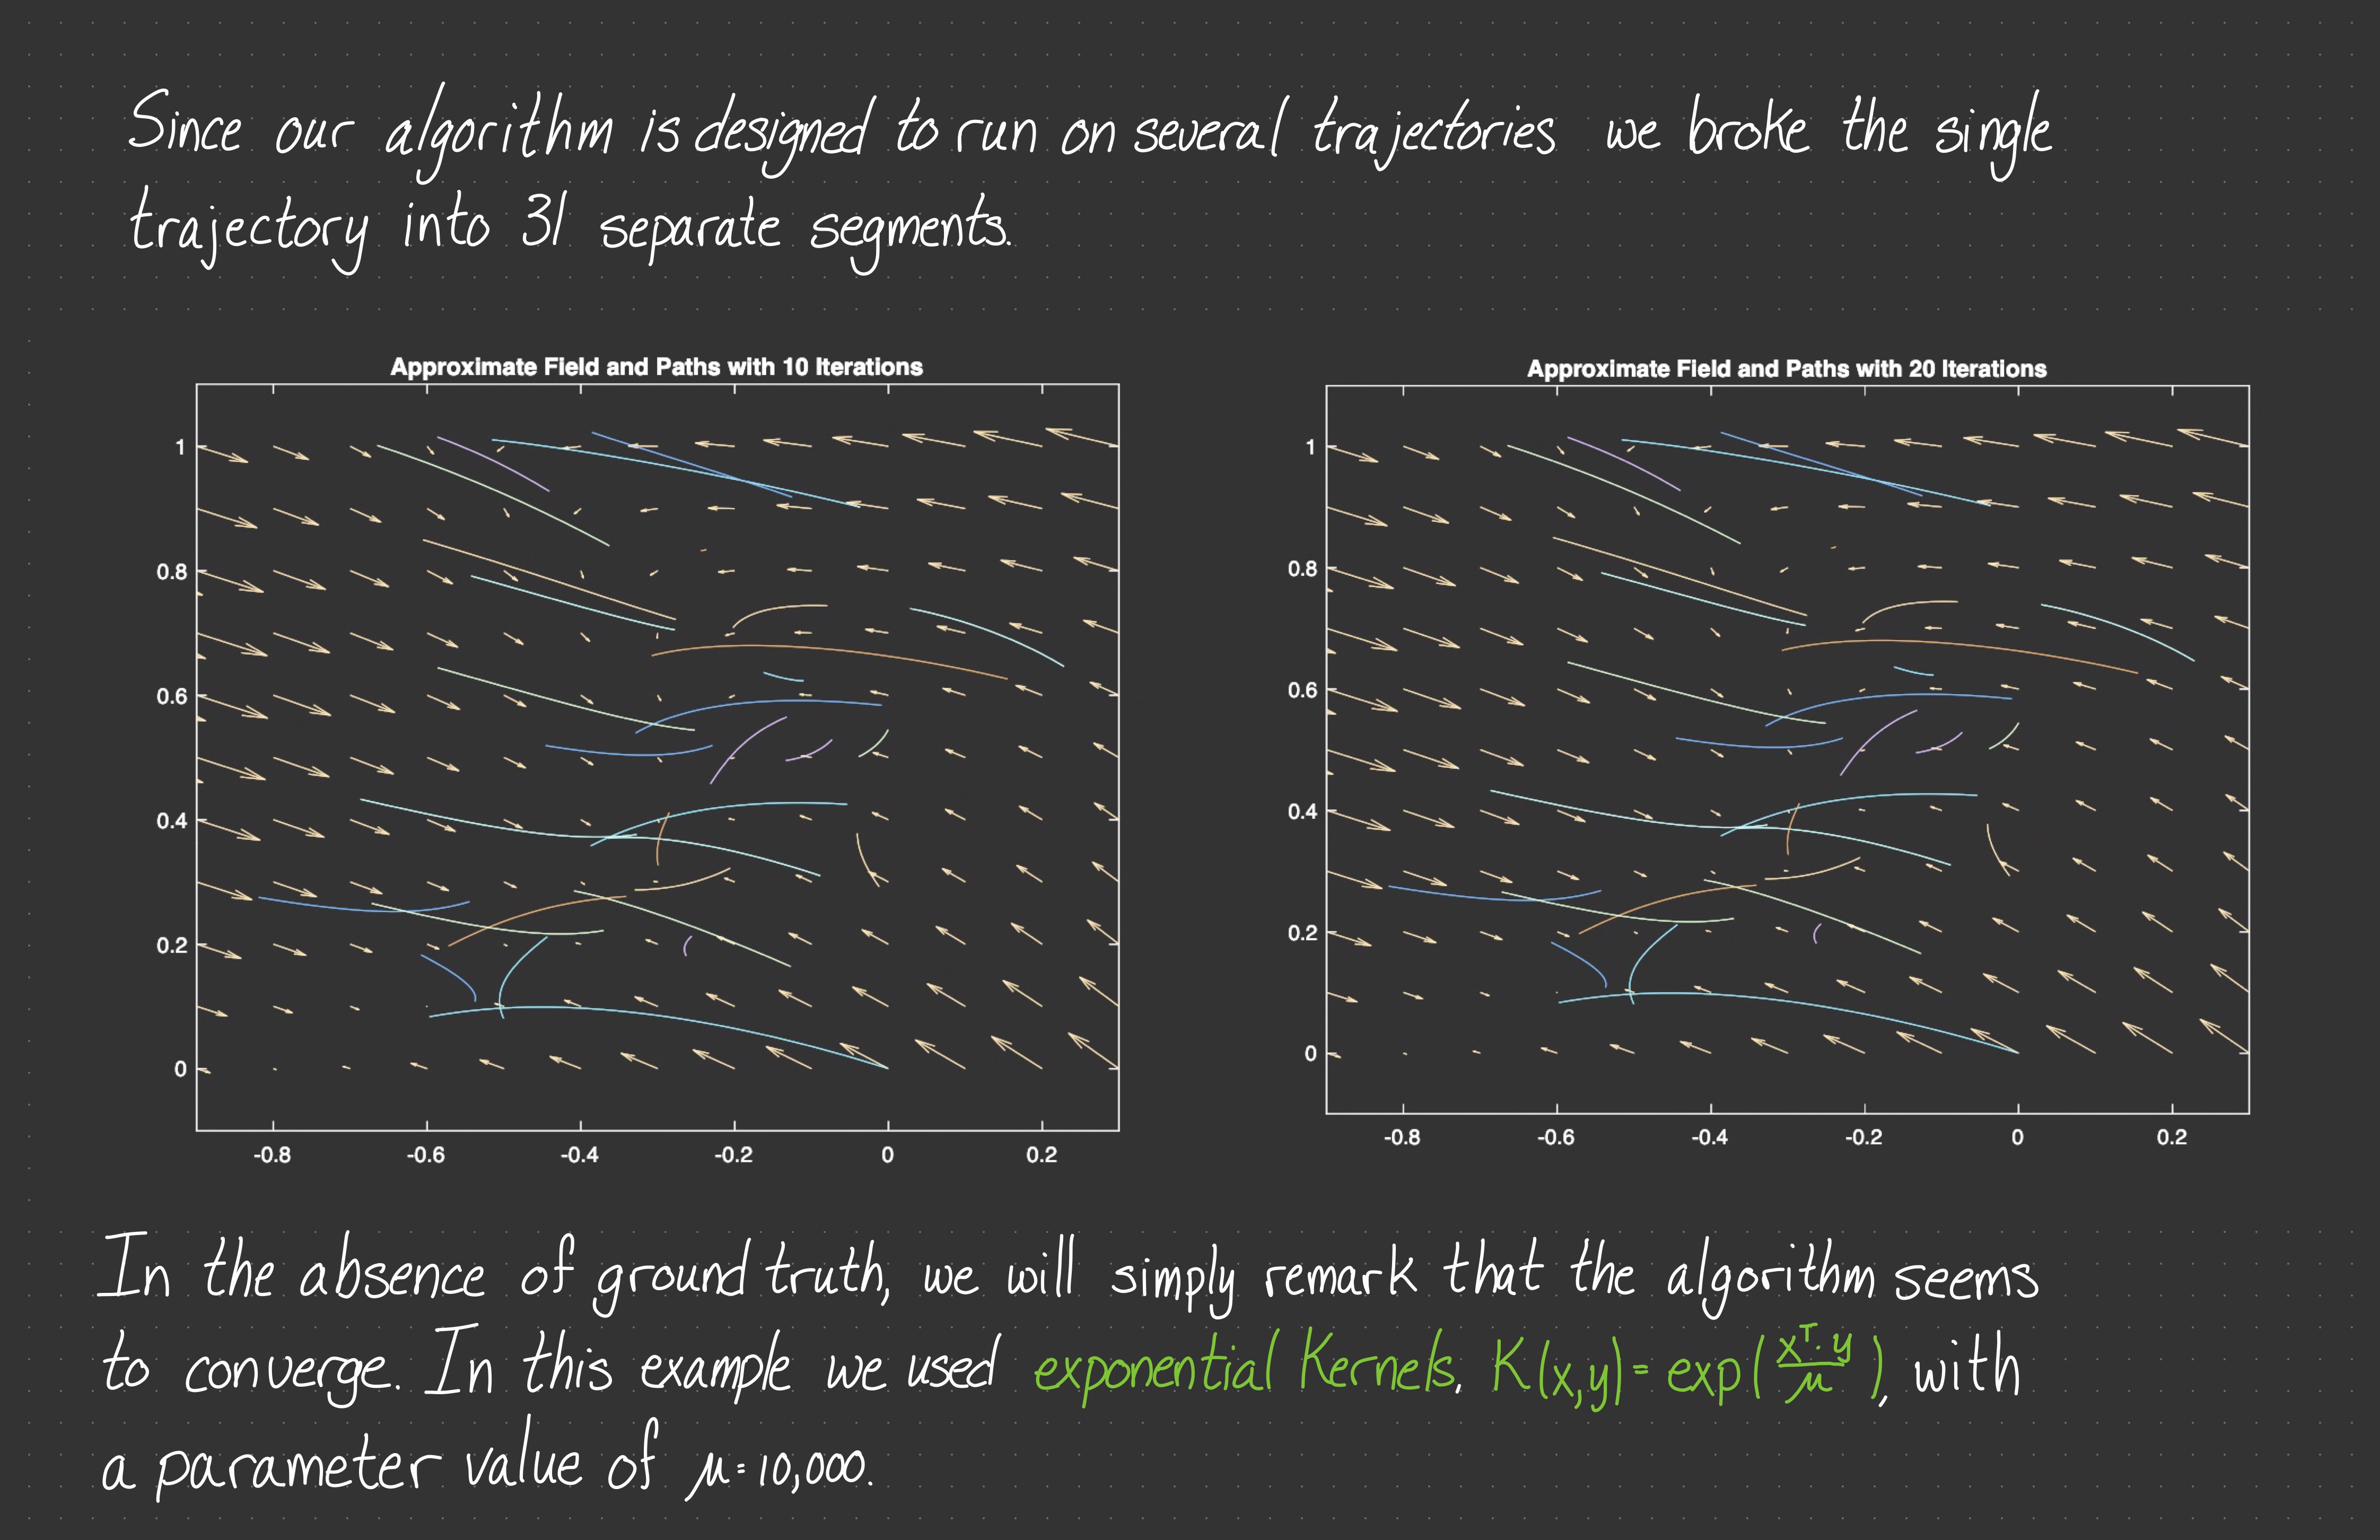 Since our algorithm is designed to run on several trajectories we broke the single
trajectory into 31 separate segments.
Approximate Field and Paths with 10 Iterations
1
0.8
0.6
0.4
0.2
0
-0.8 -0.6 -0.4 -0.2 0 0.2
Approximate Field and Paths with 20 Iterations
1
0.8
0.6
0.4
0.2
0
-0.8 -0.6 -0.4 -0.2 0 0.2
In the absence of ground truth, we will simply remark that the algorithm seems
to converge. In this example we used exponential Kernels, K(x,y) = exp(xᵀ·y/μ), with
a parameter value of μ = 10,000.